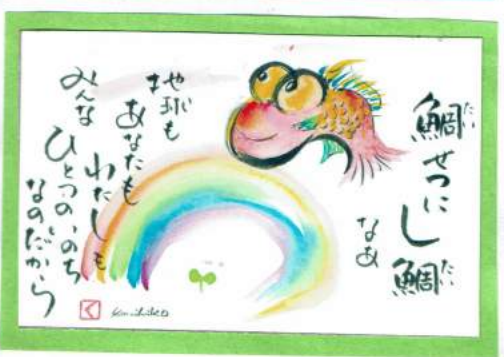 鯛せつにし鯛
たい
たい
なあ
地球も
あなたも
わたしも
みんな
ひとつのいのち
なのだから
く